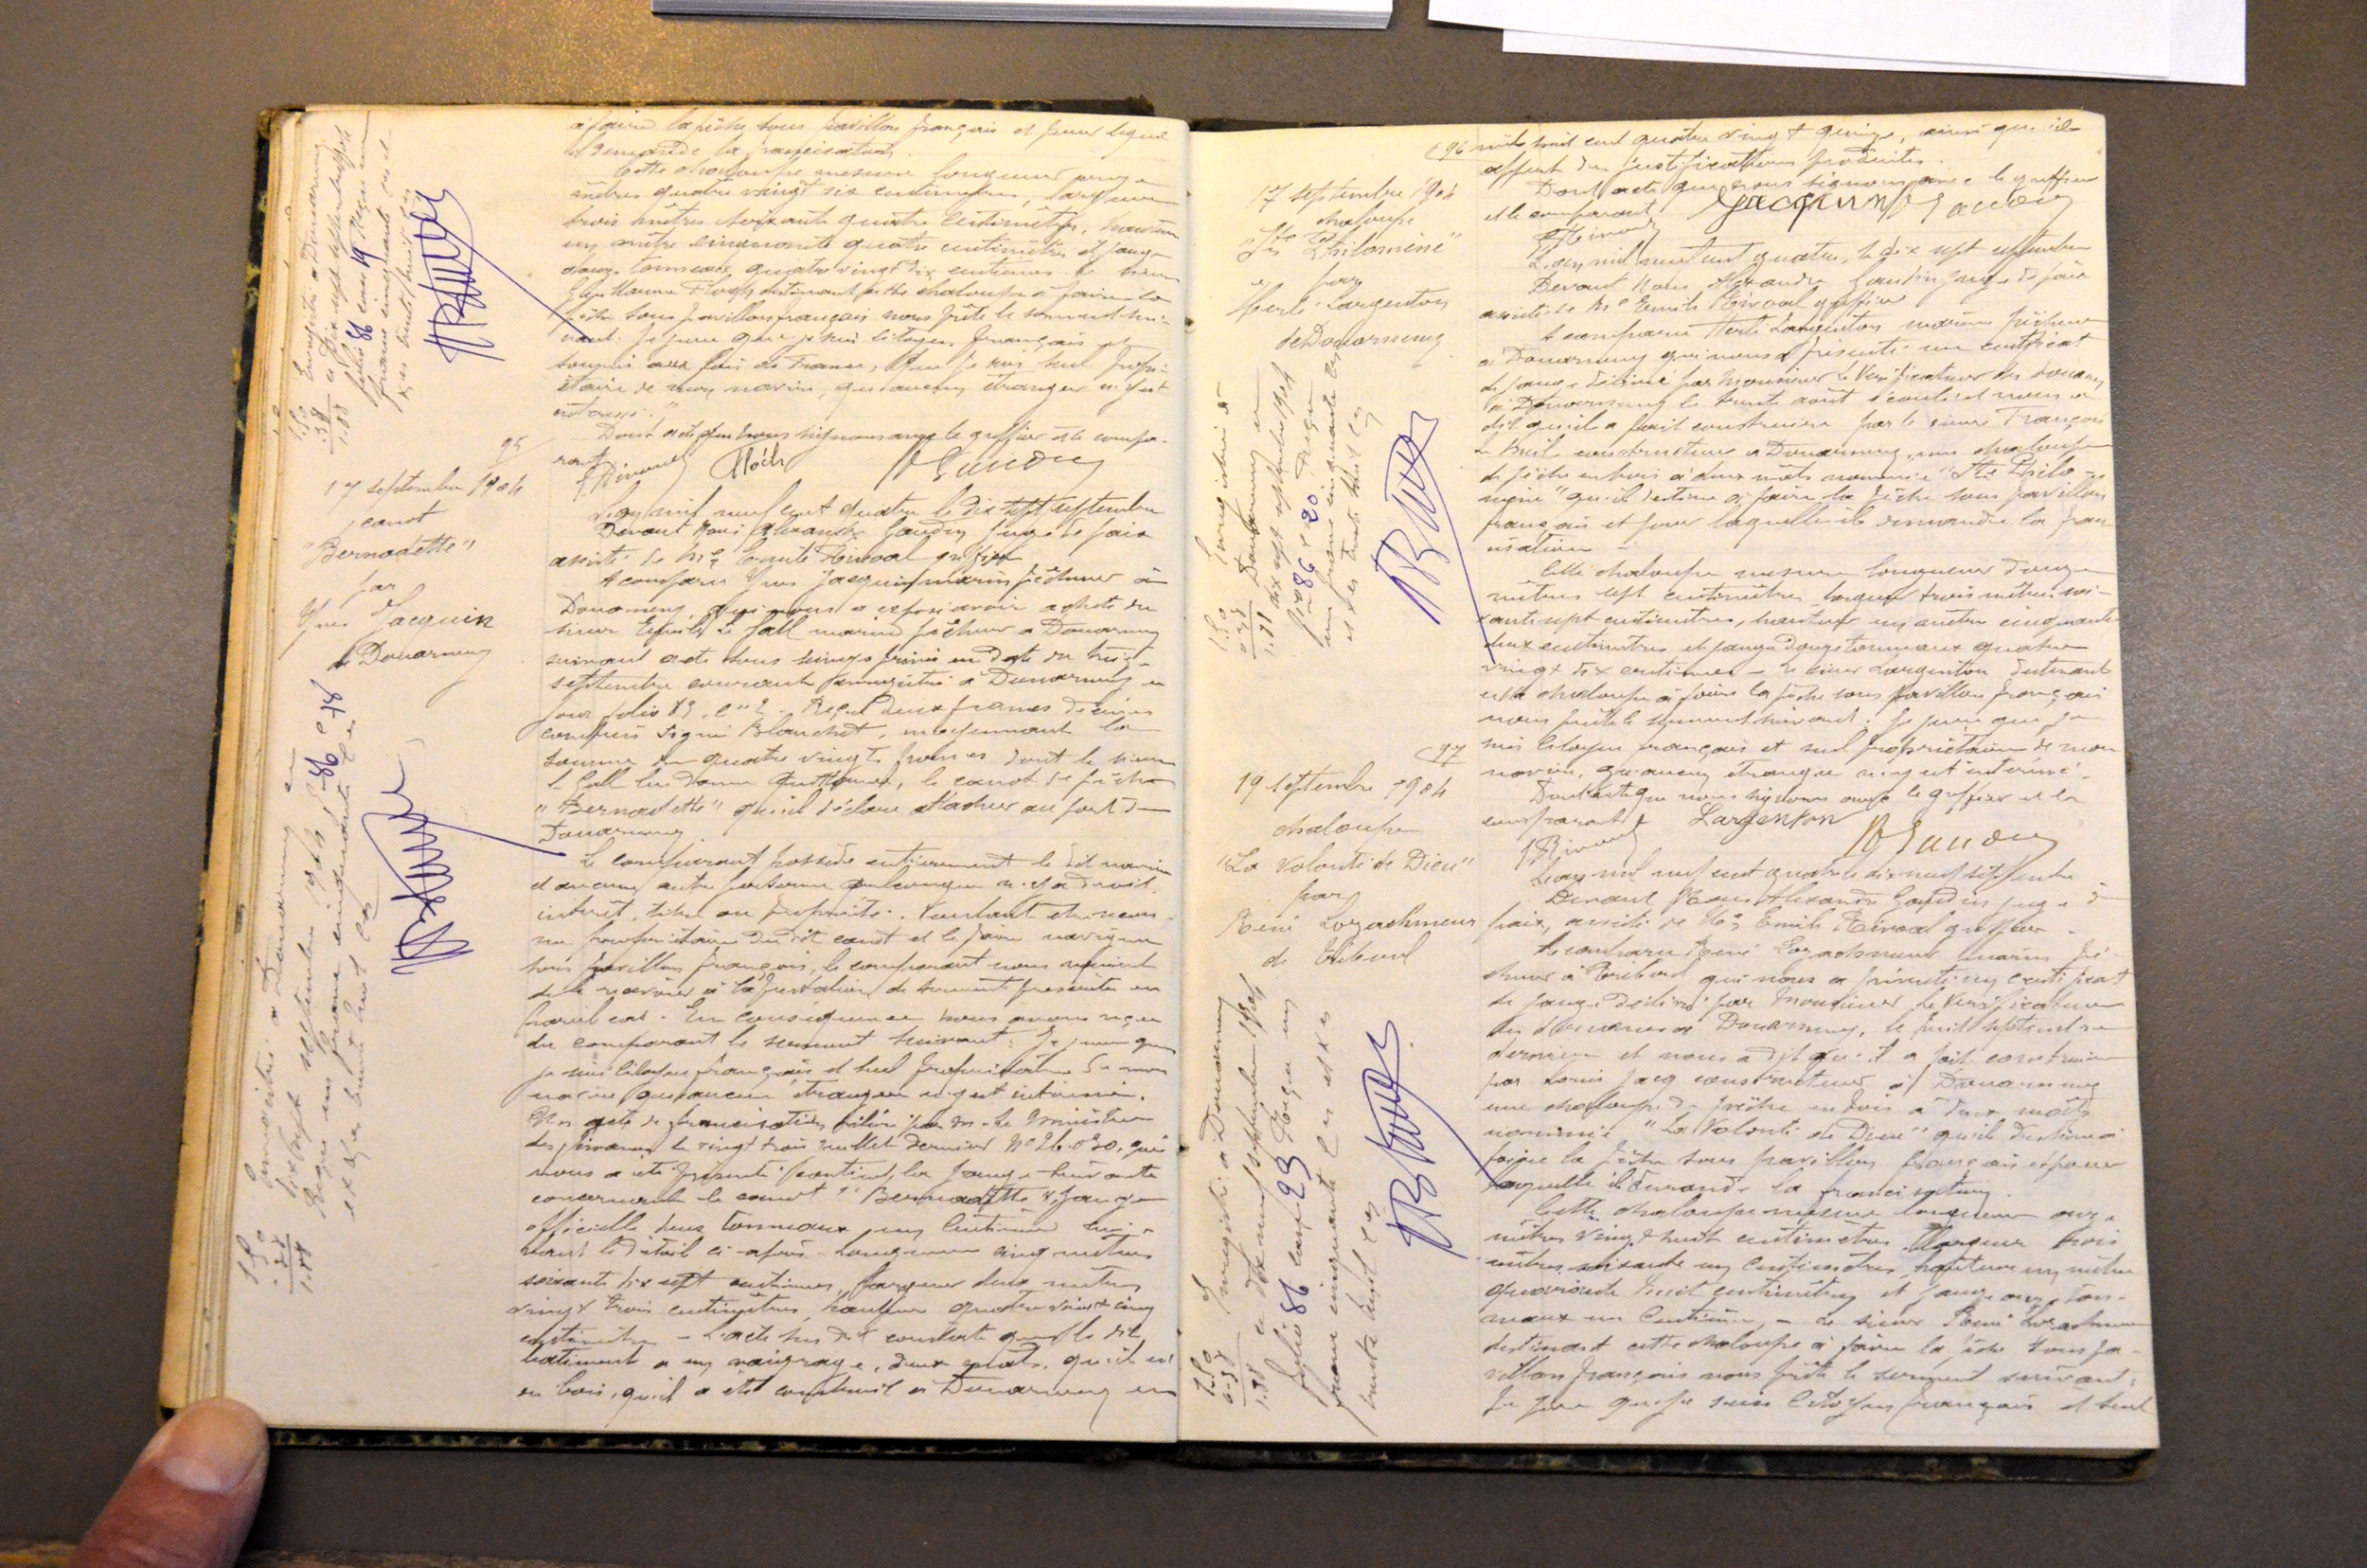 à faire la pêche sous pavillon français et pour lequel
il demande la francisation.
Cette chaloupe mesure longueur onze
mètres quatre vingt six centimètres, largeur
trois mètres soixante quatre centimètres, hauteur
un mètre cinquante quatre centimètres et jauge
douze tonneaux quatre vingt dix centièmes. Le sieur
Guillaume Floch destinant cette chaloupe à faire la
pêche sous pavillon français nous prête le serment sui-
vant: Je jure que je suis citoyen français et
soumis aux lois de France, que je suis seul propri-
étaire de mon navire, qu'aucun étranger n'y est
intéressé."
Dont acte que nous signons avec le greffier et le compa-
rant
Enregistré à Douarnenez
le dix sept septembre 1904
folio 86 case 19 Reçu un
franc cinquante ces et
xes trente huit ces
1.50
.38
1.88
95
17 septembre 1904
canot
"Bernadette"
par
Yves Jacquin
de Douarnenez
L'an mil neuf cent quatre le dix sept septembre
Devant Nous Alexandre Gaudin juge de paix
assisté de Me Emile Rivoal greffier
A comparu Yves Jacquin marin pêcheur à
Douarnenez, qui nous a exposé avoir acheté du
sieur Le Gall marin pêcheur à Douarnenez
suivant acte sous seings privés en date du
septembre courant enregistré à Douarnenez
Reçu deux francs décimes
compris signé Blanchet, moyennant la
somme de quatre vingts francs dont le sieur
Le Gall lui donne quittance, le canot de pêche
"Bernadette" qu'il déclare attacher au port de
Douarnenez
Le comparant possède entièrement le dit navire
et aucune autre personne quelconque n'y a droit,
intérêt, titre ou propriété. Voulant
propriétaire du dit canot et le faire naviguer
sous pavillon français, le comparant nous requiert
de le recevoir à la prestation de serment prescrite en
pareil cas. En conséquence nous avons reçu
du comparant le serment suivant: Je jure que
je suis citoyen français et seul propriétaire de mon
navire qu'aucun étranger n'y est intéressé.
Un acte de francisation délivré par M. Le Ministre
des finances le vingt trois juillet dernier No 26.030, qui
nous a été présenté contient la jauge suivante
concernant le canot "Bernadette", jauge
officielle deux tonneaux un centième sui-
vant le détail ci-après. Longueur cinq mètres
soixante dix sept centimes, largeur deux mètres
vingt trois centimètres, hauteur quatre vingt cinq
centimètres - L'acte sus dit constate que le dit
bâtiment a un, deux mâts, qu'il est
en bois, qu'il a été construit à Douarnenez en
Enregistré à Douarnenez
dix sept septembre 1904 fo 86 c
Reçu un franc cinquante ces
et xes trente huit ces
1.50
.38
1.88
mil huit cent quatre vingt quinze, ainsi qu'il
appert des justifications produites.
Dont acte que nous signons avec le greffier
et le comparant Jacquin Gaudin
96
17 septembre 1904
chaloupe
"Ste Philomène"
par
Herlé Largenton
de Douarnenez
L'an mil neuf cent quatre, le dix sept septembre
Devant Nous Alexandre Gaudin juge de paix
assisté de Me Emile Rivoal greffier
A comparu Herlé Largenton marin pêcheur
à Douarnenez qui nous a présenté un certificat
de jauge délivré par Monsieur le Vérificateur des Douanes
à Douarnenez le trente août écoulé et nous a
dit qu'il a fait construire par le sieur François
constructeur à Douarnenez, une chaloupe
de pêche en bois à deux mâts nommée "Ste Philo-
mène" qu'il destine à faire la pêche sous pavillon
français et pour laquelle il demande la fran-
cisation -
Cette chaloupe mesure longueur douze
mètres sept centimètres largeur trois mètres soi-
xante sept centimètres, hauteur un mètre cinquante
deux centimètres et jauge douze tonneaux quatre
vingt dix centièmes - Le sieur Largenton destinant
cette chaloupe à faire la pêche sous pavillon français
nous prête le serment suivant: Je jure que je
suis citoyen français et seul propriétaire de mon
navire, qu'aucun étranger n'y est intéressé.
Dont acte que nous signons avec le greffier et le
comparant Largenton Gaudin
Enregistré à
Douarnenez le
dix sept septembre 1904
fo 86 c 20 Reçu
un franc cinquante ces
et xes trente huit ces
97
19 septembre 1904
chaloupe
"La Volonté de Dieu"
par
René Lozachmeur
de Tréboul
L'an mil neuf cent quatre le dix neuf septembre
Devant Nous Alexandre Gaudin juge de
paix, assisté de Me Emile Rivoal greffier.
A comparu René Lozachmeur marin pê-
cheur à Tréboul qui nous a présenté un certificat
de jauge délivré par Monsieur Le Vérificateur
des douanes à Douarnenez, le huit septembre
dernier et nous a dit qu'il a fait construire
par Louis Jacq constructeur à Douarnenez
une chaloupe de pêche en bois à deux mâts
nommée "La Volonté de Dieu" qu'il destine à
faire la pêche sous pavillon français et pour
laquelle il demande la francisation.
Cette chaloupe mesure longueur onze
mètres vingt huit centimètres largeur trois
mètres soixante un centimètres, hauteur un mètre
quarante huit centimètres et jauge onze ton-
neaux un centième, - Le sieur René Lozachmeur
destinant cette chaloupe à faire la pêche sous pa-
villon français nous prête le serment suivant:
Je jure que je suis citoyen français et seul
Enregistré à Douarnenez
le dix neuf septembre 1904
folio 86 case 23 Reçu un
franc cinquante ces et xes
trente huit ces
1.50
0.38
1.88